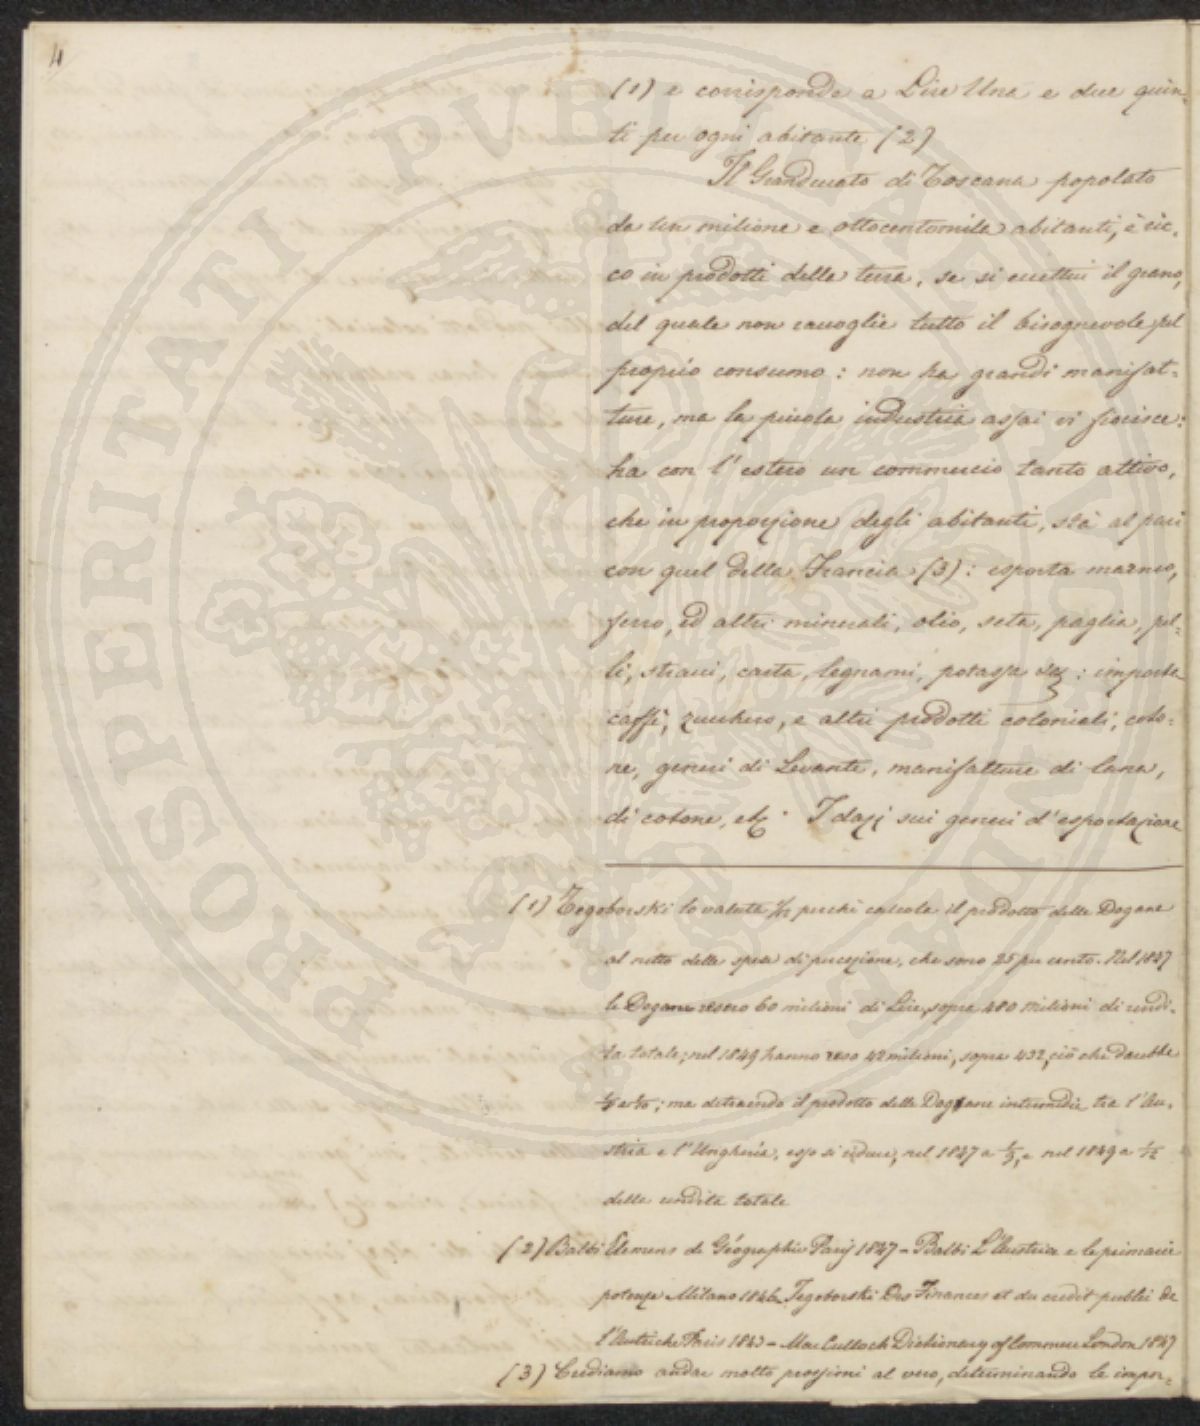 4
(1) e corrisponde a Lire Una e due quin-
ti per ogni abitante (2)
Il Granducato di Toscana popolato
da un milione e ottocentomila abitanti, è ric-
co in prodotti della terra, se si eccettui il grano,
del quale non raccoglie tutto il bisognevole pel
proprio consumo: non ha grandi manifat-
ture, ma la piccola industria assai vi fiorisce:
ha con l'estero un commercio tanto attivo,
che in proporzione degli abitanti, stà al pari
con quel della Francia (3): esporta marmo,
ferro, ed altri minerali, olio, seta, paglia, pel-
li, stracci, carta, legnami, potassa etc: importa
caffè, zucchero, e altri prodotti coloniali, coto-
ne, generi di Levante, manifatture di lana,
di cotone, etc. I dazj sui generi d'esportazione
(1) Tegoborski lo valuta 1/12 perchè calcola il prodotto delle Dogane
al netto delle spese di percezione, che sono 25 per cento. Nel 1847
le Dogane resero 60 milioni di Lire, sopra 480 milioni di rendi-
ta totale; nel 1849 hanno reso 42 milioni, sopra 432, ciò che darebbe
1/8 a 1/10; ma detraendo il prodotto delle Dogane intermedie tra l'Au-
stria e l'Ungheria, esso si riduce, nel 1847 a 1/9, e nel 1849 a 1/12
della rendita totale
(2) Balbi Elemens de Géographie Paris 1847 - Balbi L'Austria e le primarie
potenze Milano 1846. Tegoborski Des Finances et du credit public de
l'Autriche Paris 1843 - Mac Culloch Dictionary of Commerce London 1847
(3) Crediamo andar molto prossimi al vero, determinando le impor-
PROSPERITATI PUBLICAE AUGENDAE